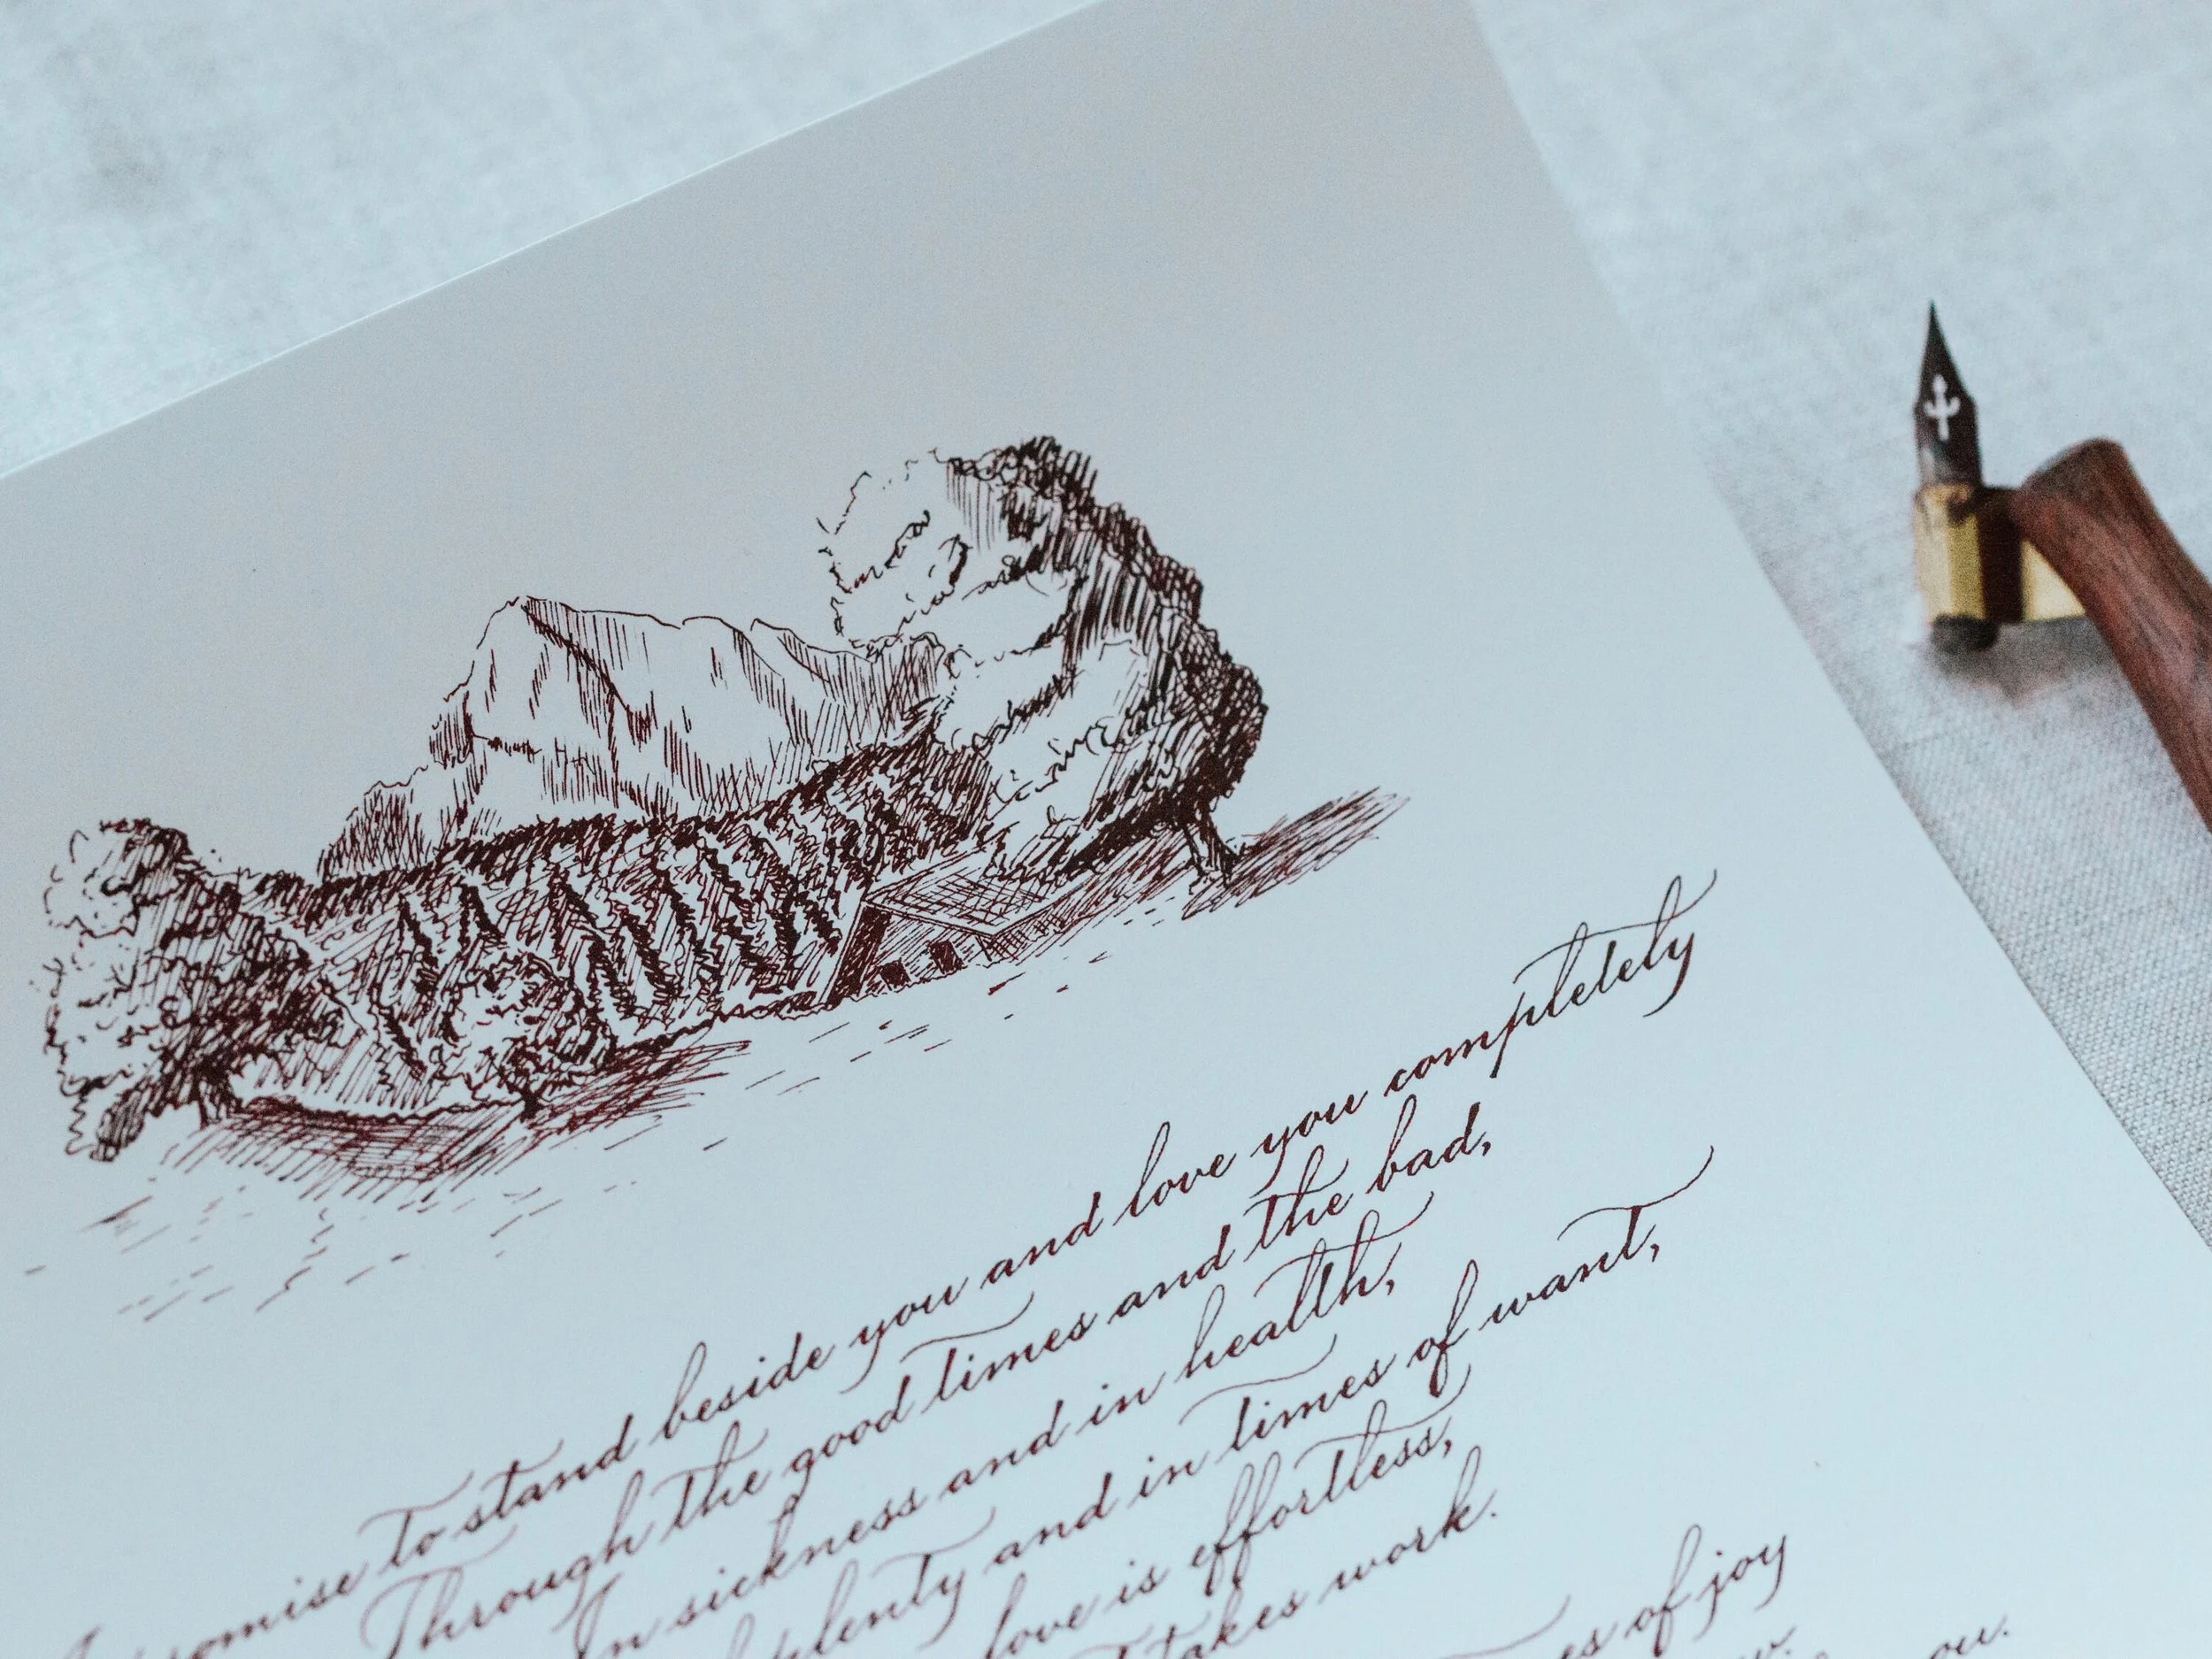 promise to stand beside you and love you completely
Through the good times and the bad,
In sickness and in health,
plenty and in times of want,
love is effortless,
takes work.
of joy
you.